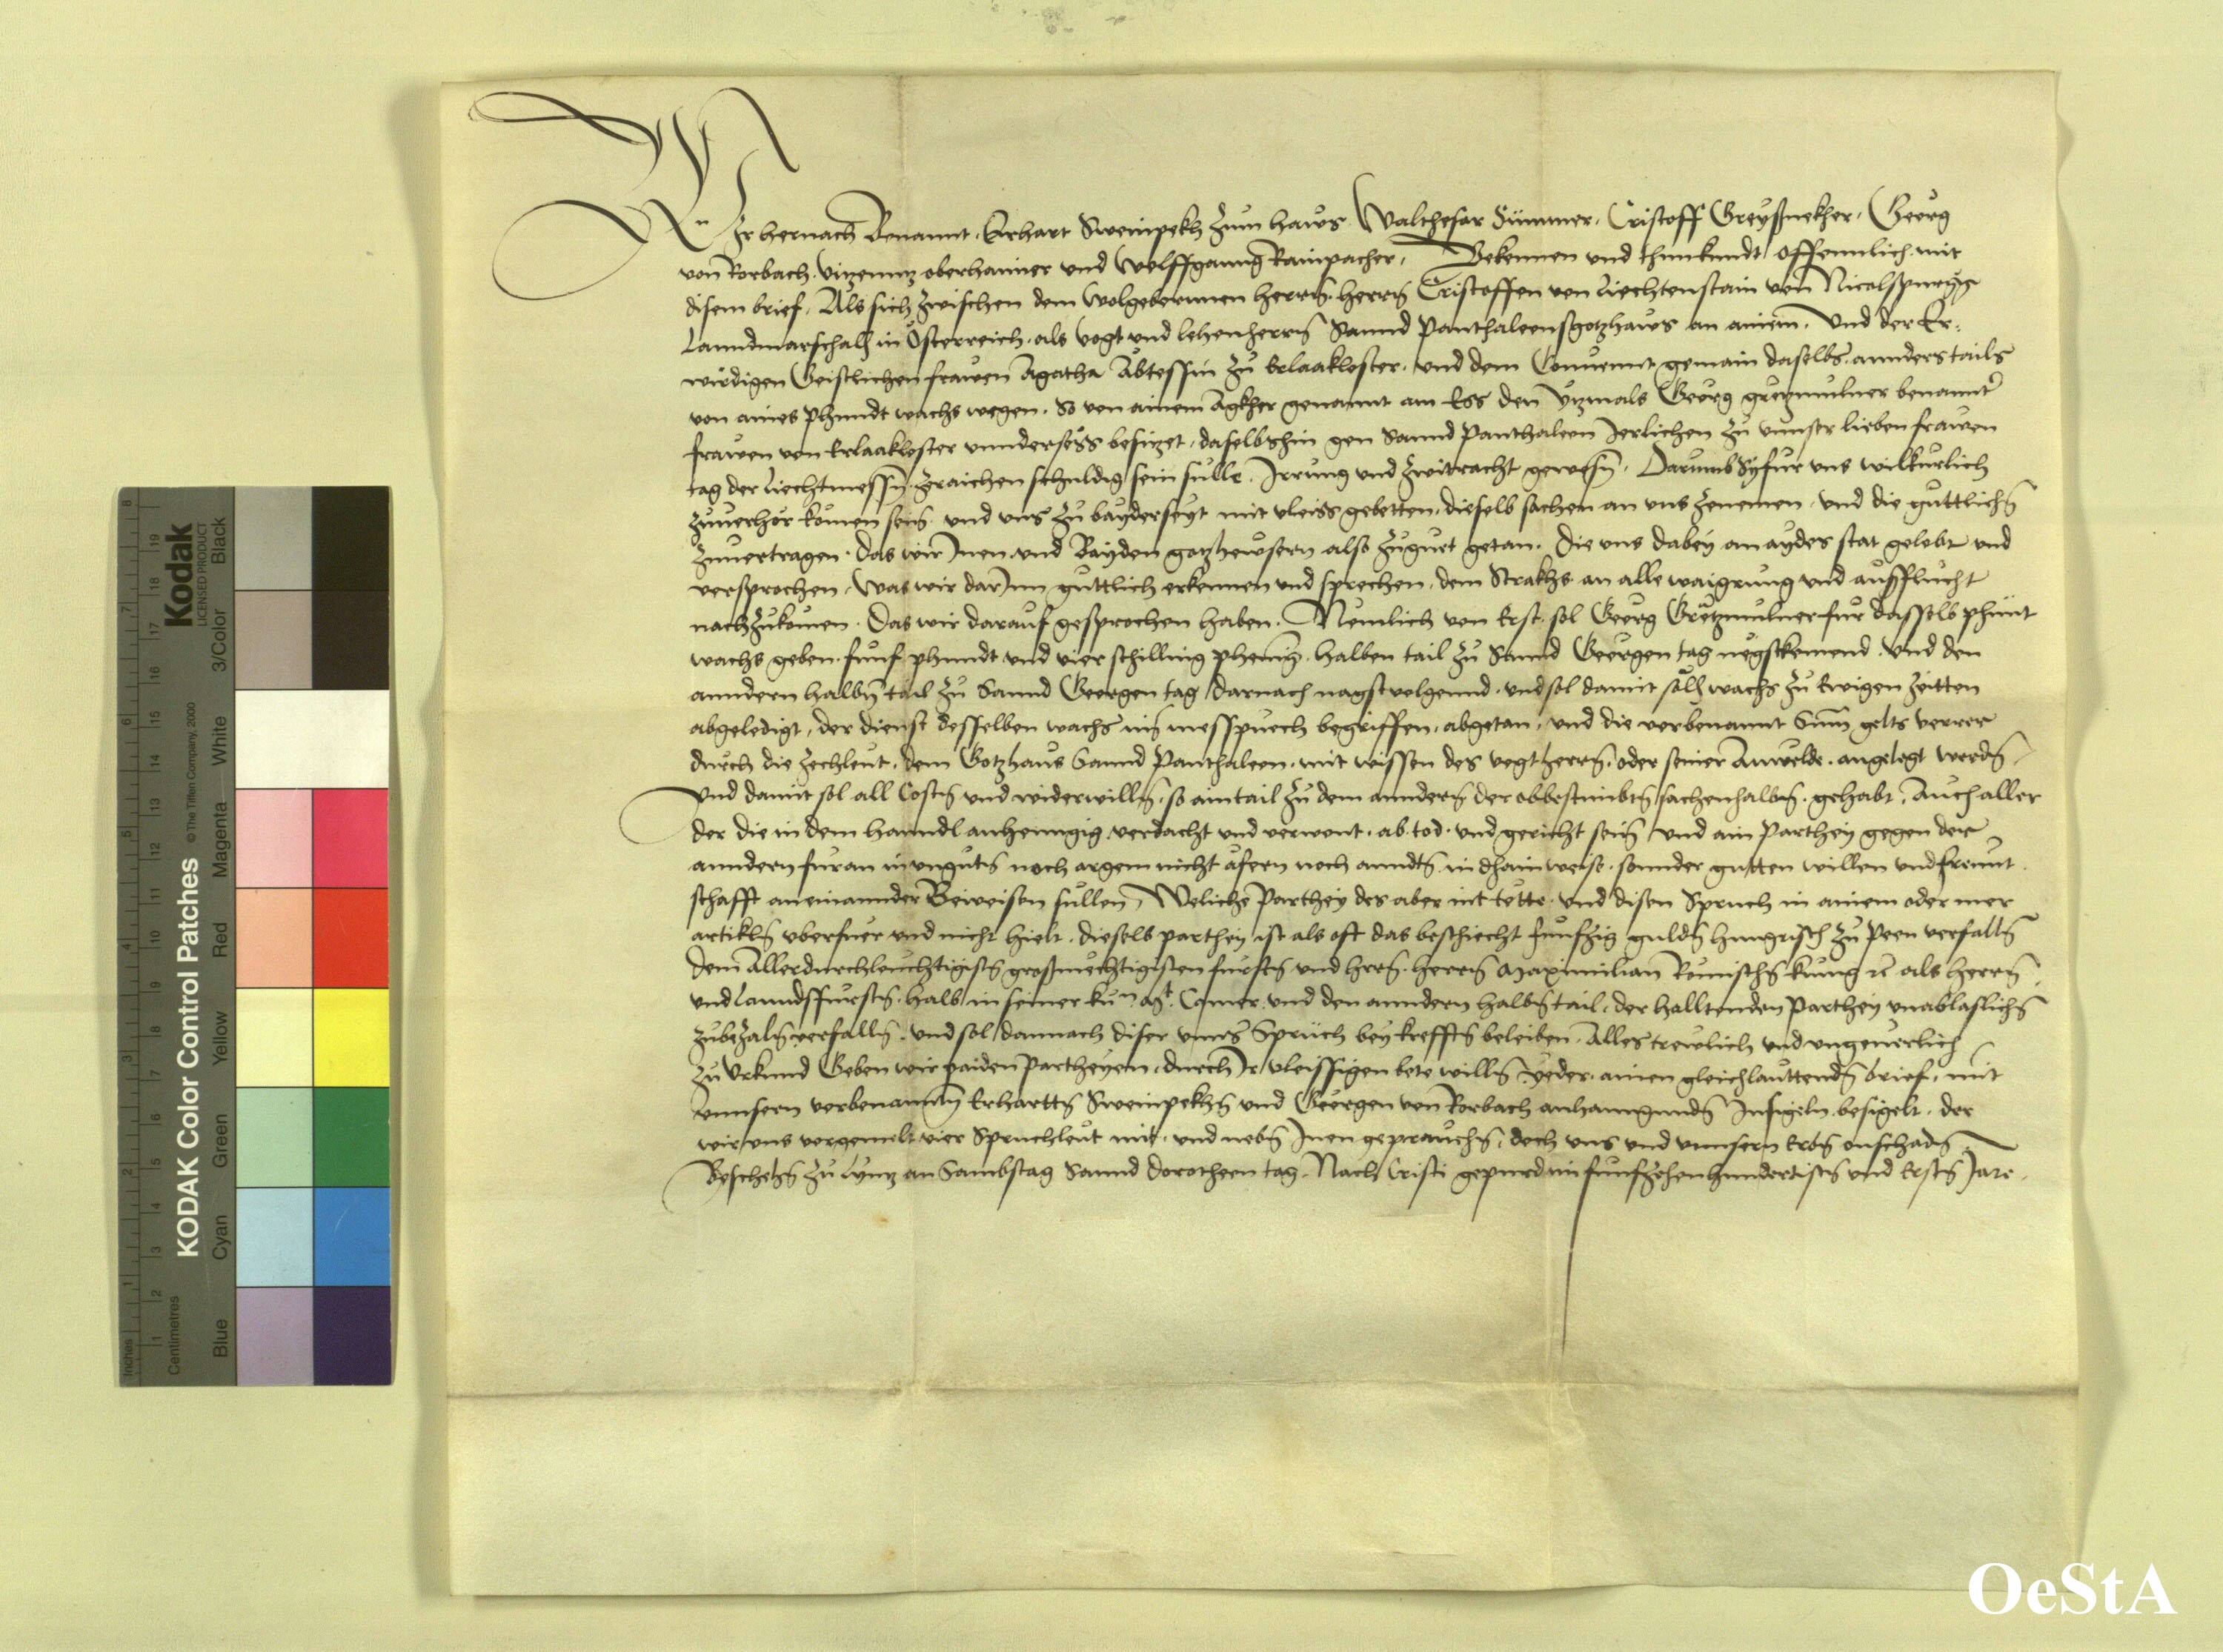 Wir hernach Benannt, Erhart Sweinpekh zum haws Walthesar Sünnner, Cristoff Greyßnekher, Georg
von Rorbach, vitzenntz oberhaimer und Wolffganng Rainpacher, Bekennen und thun kundt offennlich mit
disem brief, Als sich zwischen dem Wolgebornnen herrn, herrn Cristoffen von Liechtenstain von Nicolspurgg
Lanndmarschalh in Österreich, als vogt und lehenherrn Sannd Panthaleons gotzhaws an ainem, Und der Er-
wirdigen Geistlichen frawen Agatha Abtessin zu Erlaakloster, und dem Convennt gemain daselbs annders tails
von aines phundt wachs wegen, So von ainem Agkher genannt am Ess den ytzmals Georg gretzmulner benannter
frawen von Erlaakloster unndersess besitzet, daselbshin gen Sannd Panthaleon Jerlichen zu unnser lieben frawen
tag der Liechtmessn zeraichen schuldig sein sulle, Irrung und zwitracht gewesn, Darumb Sy fur uns wilkurlich
zuverhor komen sein und uns zu bayderseyt mit vleiss gebetten, dieselb sachen an uns zenemen, und die guttlichn
zuvertragen, das wir Inen und Bayden gotzhewsern also zuguet getan, die uns dabey an aydes stat gelobt und
versprochen, Was wir darInn guttlich erkennen und sprechen, dem Strakhs an alle waigrung und ausflucht
nachzukomen, Das wir darauf gesprochen haben, Nemlich von Erst, sol Georg Gretzmulner fur dasselb phunt
wachs geben, funf phundt und vier schilling phening, halben tail zu Sannd Georgen tag negstkomend, und den
anndern halbn tail zu Sannd Georgen tag darnach nagstvolgennd, und sol damit solh wachs zu Ewigen zeitten
abgeledigt, der dienst desselben wachs im messpuech begriffen, abgetan, und die vorbenannt Sum gelts verrer
durch die zechleut, dem Gotzhaus Sannd Panthaleon, mit wissen des vogtherrn, oder seiner Anwelde, angelegt werdn,
Und damit sol all Costn und widerwilln, so ain tail zu dem anndern der obbestimbtn sachenhalbn, gehabt, Auch aller
der die in dem hanndl anhenngig verdacht und verwont, ab, tod, und gericht sein, und ain Parthey gegen der
anndern furan in unguten noch argem nicht afern noch annden, in dhain weise, sonnder gutten willen und frunt
schafft aneinannder Beweisen sullen, Weliche Parthey des aber nit tette, und disen Spruch in ainem oder mer
artikeln uberfuer und nicht hielt, dieselb parthey ist als oft das beschiecht funfzig guldn hungrisch zu Peen verfalln
dem Allerdurchleuchtigistn großmechtigisten fursten und hrrn, herrn Maximilian Romischn kunig etc als herrn
und Lanndsfurstn, halb in seiner kun. Mt. Camer, und den anndern halbn tail, der halltenden Parthey unablaslichn
zubezaln verfalln, und sol dannach diser unnser Spruch bey kreffftn beleiben, Alles trewlich und ungeverlich
zu Urkund Geben wir paiden Partheyen, durch Ir vleissigen bete willn yeder, ainen gleichlauttendn brief, mit
unnsern vorbenannten Erhartts Sweinpekhs und Georgen von Rorbach anhanngundn Insigeln, besigelt, der
wir uns vorgemelt vier Spruchleut mit, und nebn Inen gepraucht, doch uns und unnsern Erbn on schadn,
Beschehn zu Lynntz an Sambstag Sannd dorotheen tag, Nach Cristi gepurd im funfzehenhundertistn und Erstn Jare,
KODAK Color Control Patches © The Tiffen Company, 2000
Kodak
LICENSED PRODUCT
Inches
Centimetres
Blue Cyan Green Yellow Red Magenta White 3/Color Black
OeStA